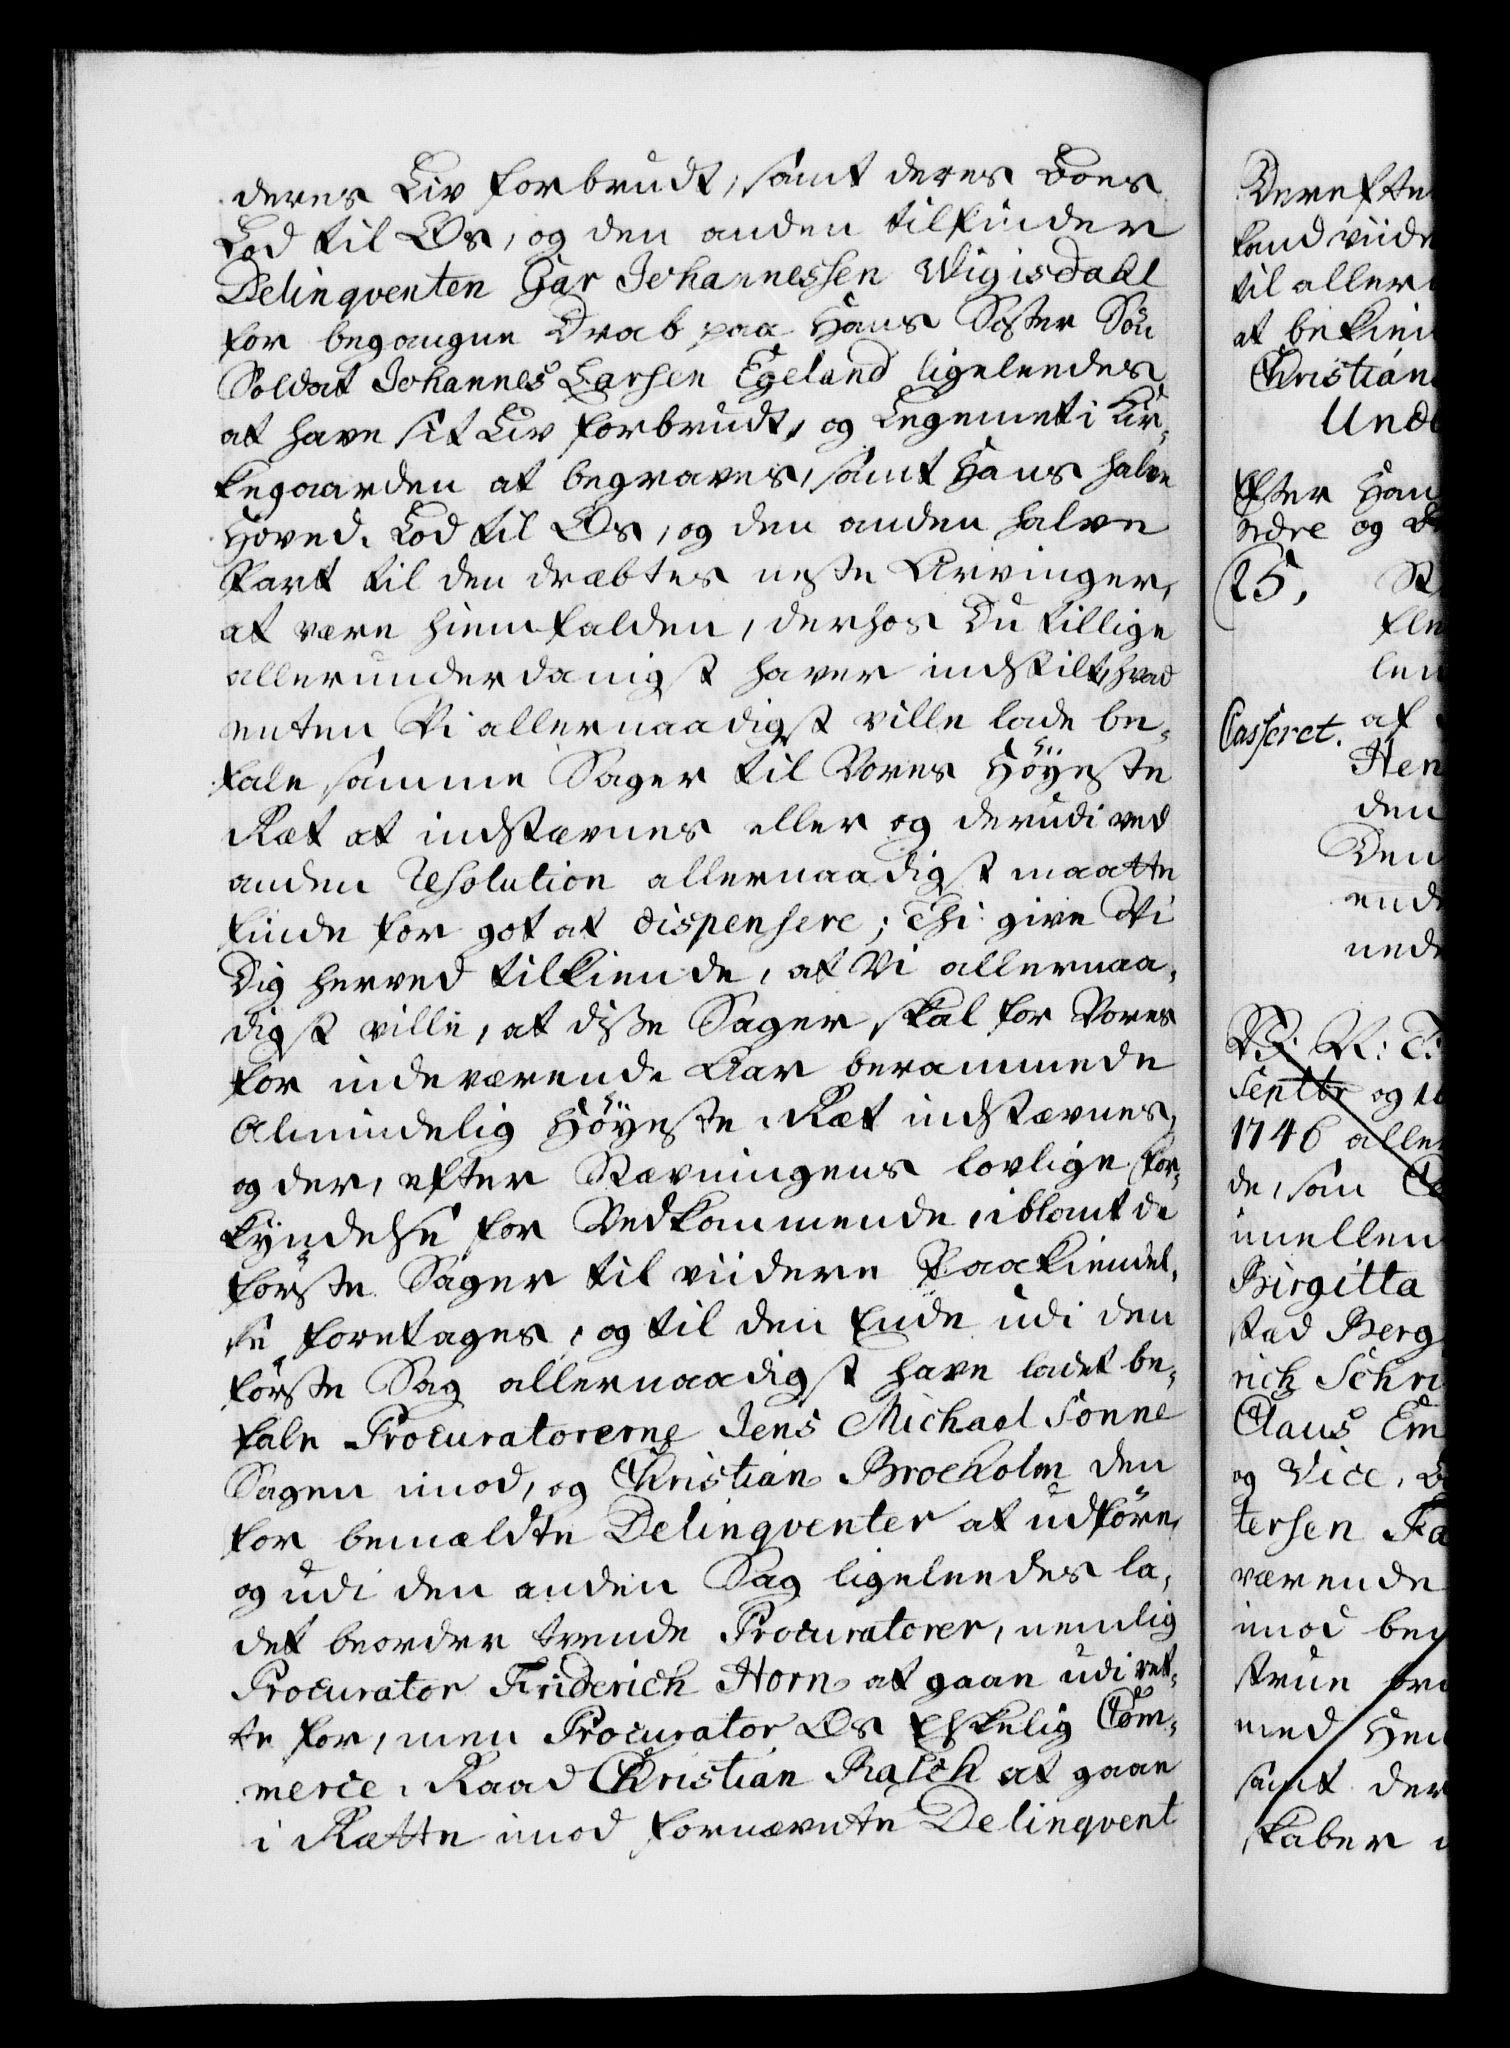 deres Liv forbrudt, samt deres Boes
Lod til Os, og den anden tilfinder
Delinqventen Giar Johannessen Wigisdahl
for begangne Drab paa Hans Söster Sön
Soldat Johannes Larsen Egeland ligeleedes
at have sit Liv forbrudt, og Legemet i Kir-
kegaarden at begraves, samt Hans halve
Hoved-Lod til Os, og den anden halve
Part til den dræbtes neste Arvinger,
at være hiemfalden, derhos Du tillige
allerunderdanigst haver indstilt, hvad
enten Vi allernaadigst ville lade be-
fale samme Sager til Vores Höyeste
Ræt at indstævnes eller og derudi ved
anden Resolution allernaadigst maatte
finde for got at dispensere; Thi give Vi
Dig herved tilkiende, at Vi allernaa-
digst ville, at disse Sager skal for Vores
for indeværende Aar berammede
Almindelig Höyeste-Ræt indstævnes,
og der, efter Stævningens lovlige for-
kyndelse for Vedkommende, iblant de
förste Sager til viidere Paakiendel-
se foretages, og til den Ende udi den
förste Sag allernaadigst have ladet be-
fale Procuratorerne Jens Michael Sonne
Sagen imod, og Christian Brockolm den
for bemældte Delinqventer at udföre,
og udi den anden Sag ligeleedes la-
det beordre tvende Procuratorer, nemlig
Procurator Friderich Horn at gaae udi ret-
te for, men Procurator Os Elskelig Com-
merce-Raad Christian Rasch at gaae
i Rætte imod fornævnte Delinqvent
Derefte
kand viide
til aller
at bekien
Christian
Unde
Efter Han
ordre og
25,
Casseret.
af
Hen
den
Den
ende
nede
Septbr og
1746 alle
de, som
imellem
Birgitta
stad Berg
rich Schr
Claus Em
og Vice-
tersen
værende
imod be
struе
med Hen
samt der
skaber